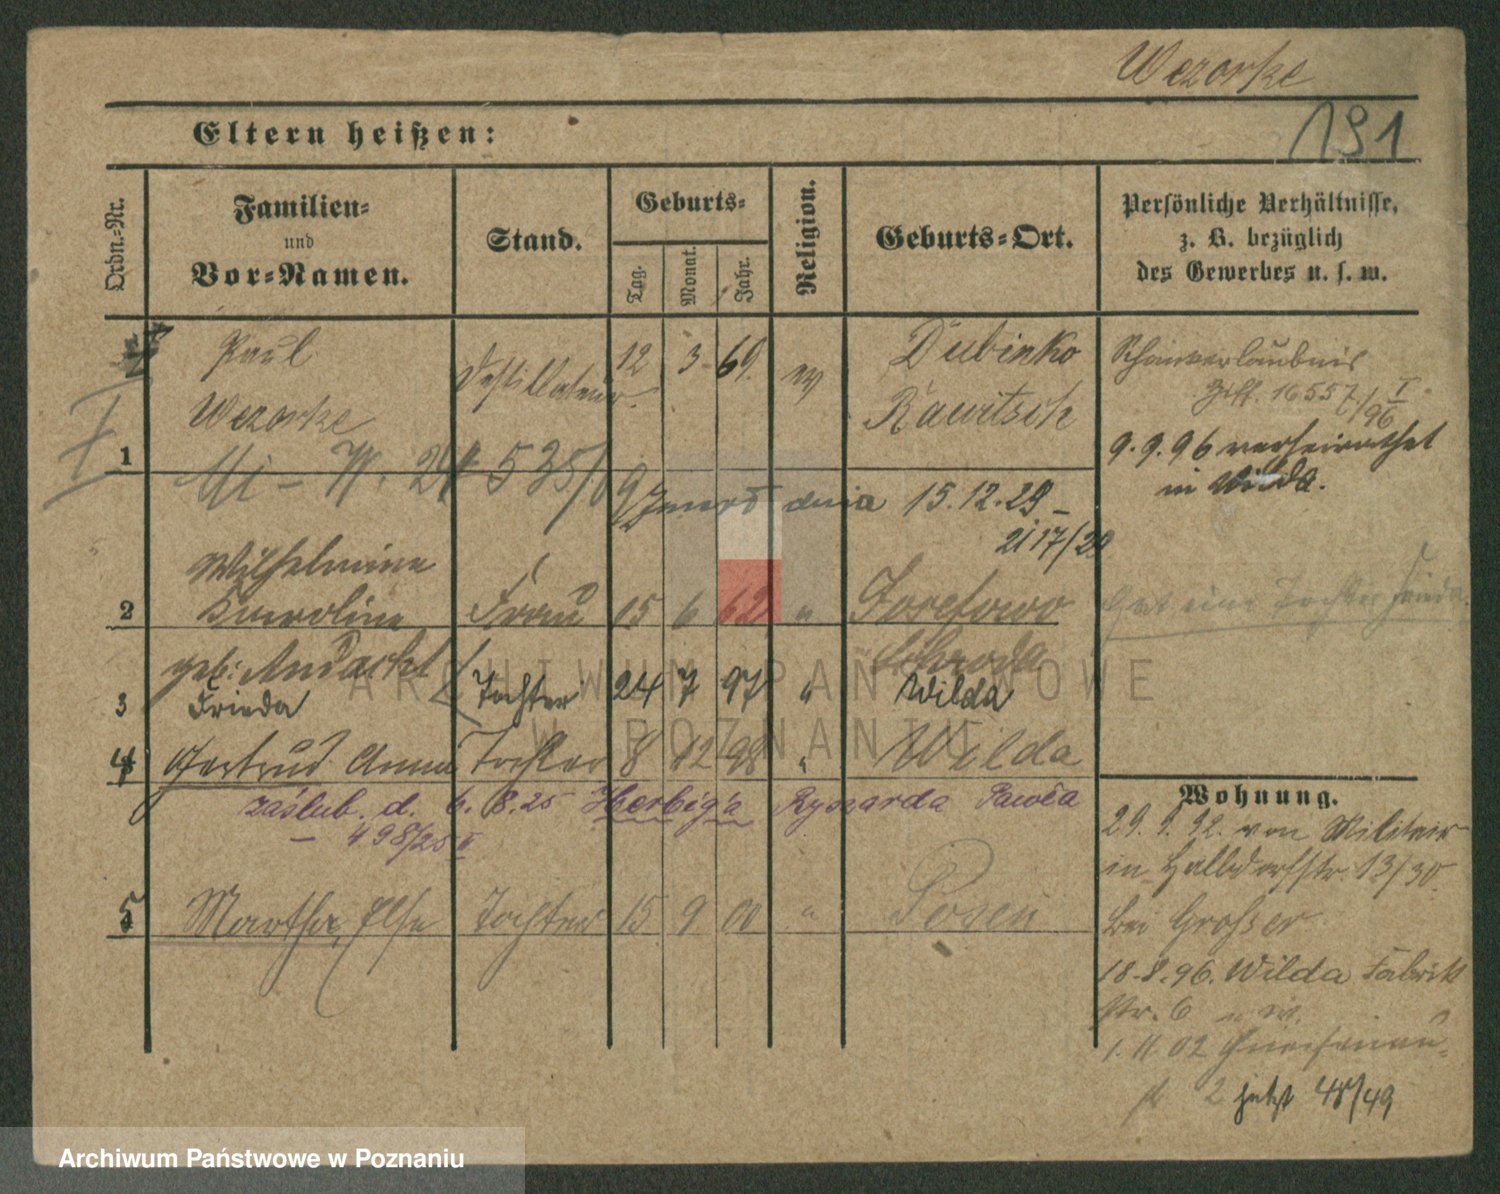 Wezorke
191
Eltern heißen:
Ordn.-Nr.
Familien-
und
Vor-Namen.
Stand.
Geburts-
Tag.
Monat.
Jahr.
Religion.
Geburts-Ort.
Persönliche Verhältnisse,
z. B. bezüglich
des Gewerbes u. s. w.
1
Paul
Wezorke
Destillateur
12 3 69. ev
Dubinko
Rawitsch
Schankerlaubnis
16557/96 I
9.9.96 verheirathet
in Wilda.
dnia 15.12.29
2
Wilhelmine
Karoline
geb: Andarkt
Frau
15 6 62 "
Josefowo
Schroda
hat eine Tochter Frieda
3
Frieda
Tochter
24 7 97 "
Wilda
4
Gertrud Anna
Tochter
8 12 98 "
Wilda
zaślub. d. 6.8.25 Herbig'a Ryszarda Pawła
498/25 II
5
Martha, Else
Tochter
15 9 00 "
Posen
Wohnung.
29.9.92. von Militair
in Halbdorfstr. 13/30
bei Grosser
18.8.96. Wilda Fabrik
Str. 6
1.11.02 Gneisenau-
2 jetzt 48/49
ARCHIWUM PAŃSTWOWE
W POZNANIU
Archiwum Państwowe w Poznaniu